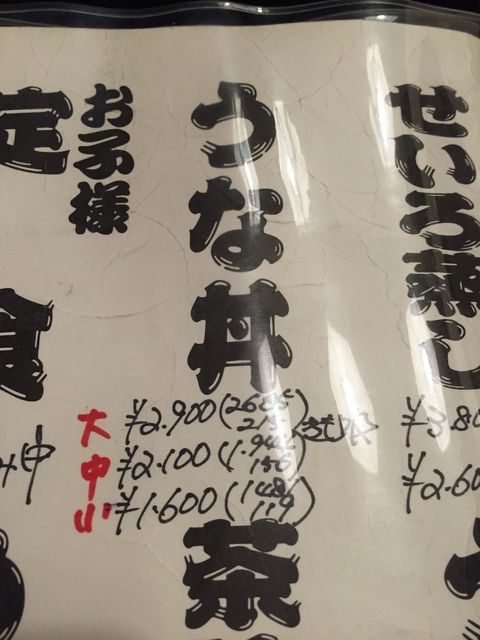 せいろ蒸し
¥3.80
¥2.60
うな丼
大 ¥2.900(2685
215)
中 ¥2.100(1.944
156)
小 ¥1.600(1481
119)
茶
お子様
定食